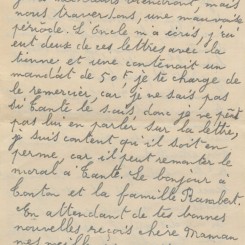 jours viendront, mais
nous traversons, une mauvaise
période. L'Oncle m'a écris, j'ai
eut deux de ces lettres avec la
tienne et une contenait un
mandat de 50f, je te charge de
le remercier, car je ne sais pas
si Tante le sais, donc je ne peut
pas lui en parler sur la lettre,
je suis content qu'il soit en
perme, car il peut remonter le
moral à Tante. Le bonjour à
Tonton et la famille Rumbert.
En attendant de tes bonnes
nouvelles reçois chère Maman
mes meill